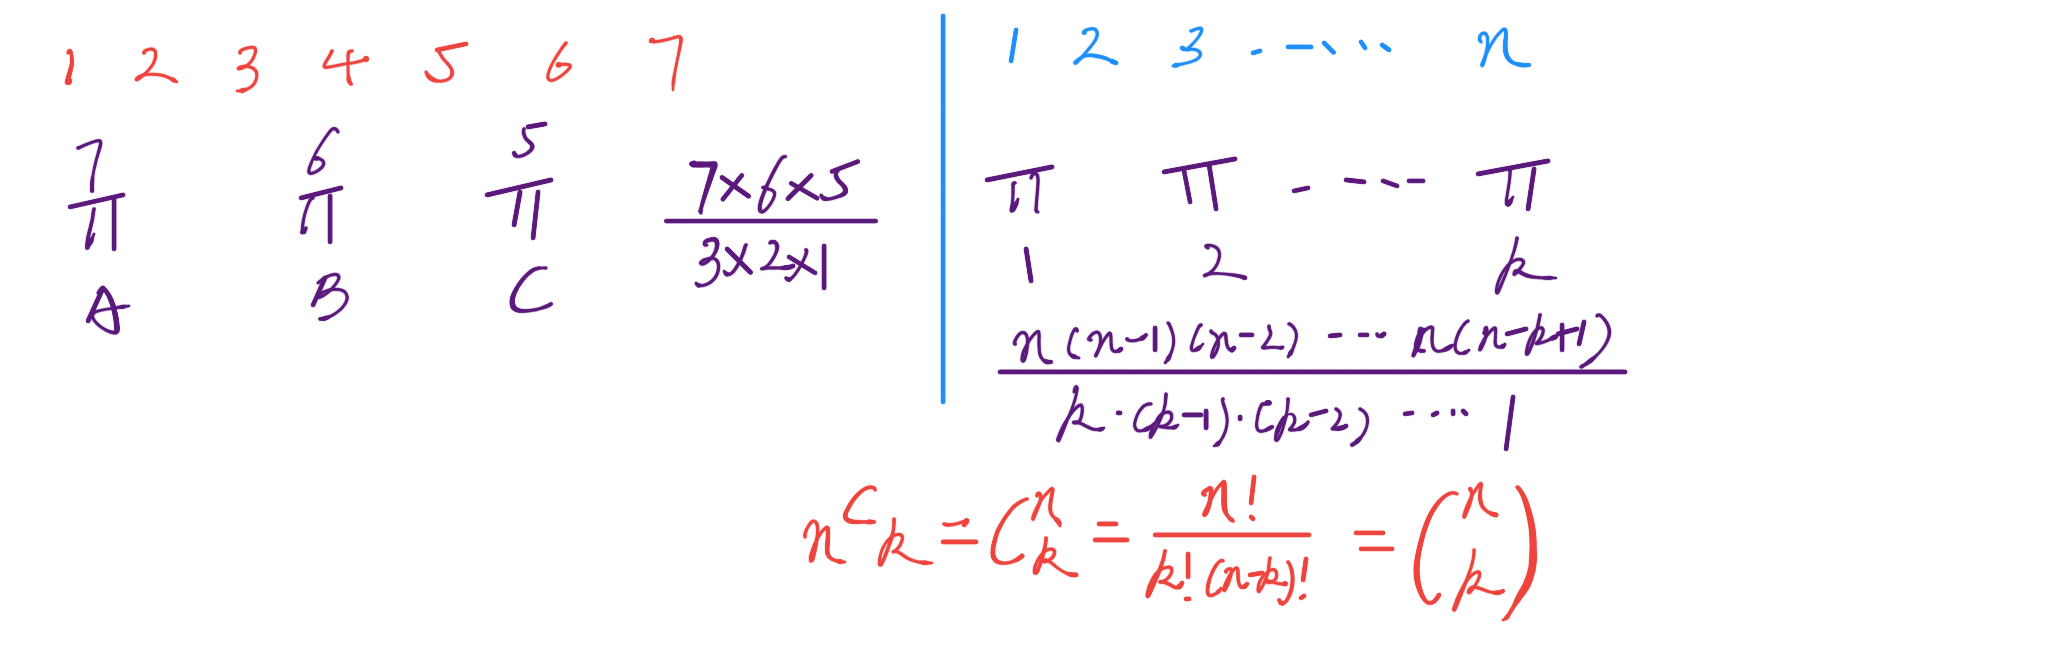 1 2 3 4 5 6 7
7 6 5
A B C
7×6×5
3×2×1
1 2 3 ..... n
1 2 k
n(n-1)(n-2) .... n(n-k+1)
k·(k-1)·(k-2) .... 1
nCk = C n k = n! / k!(n-k)! = (n k)